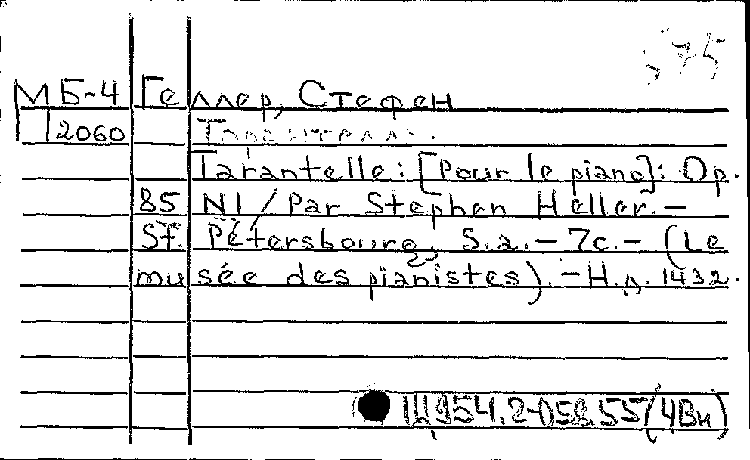 575
МБ-4 Геллер, Стефен
П2060 Тарантелла.
Tarantelle: [Pour le piano]: Op.
85 N1 / Par Stephen Heller. –
St. Pétersbourg, S.a. – 7c. – (Le
musée des pianistes). – Н.д. 1432.
Щ954.2-058.55(4Вн)